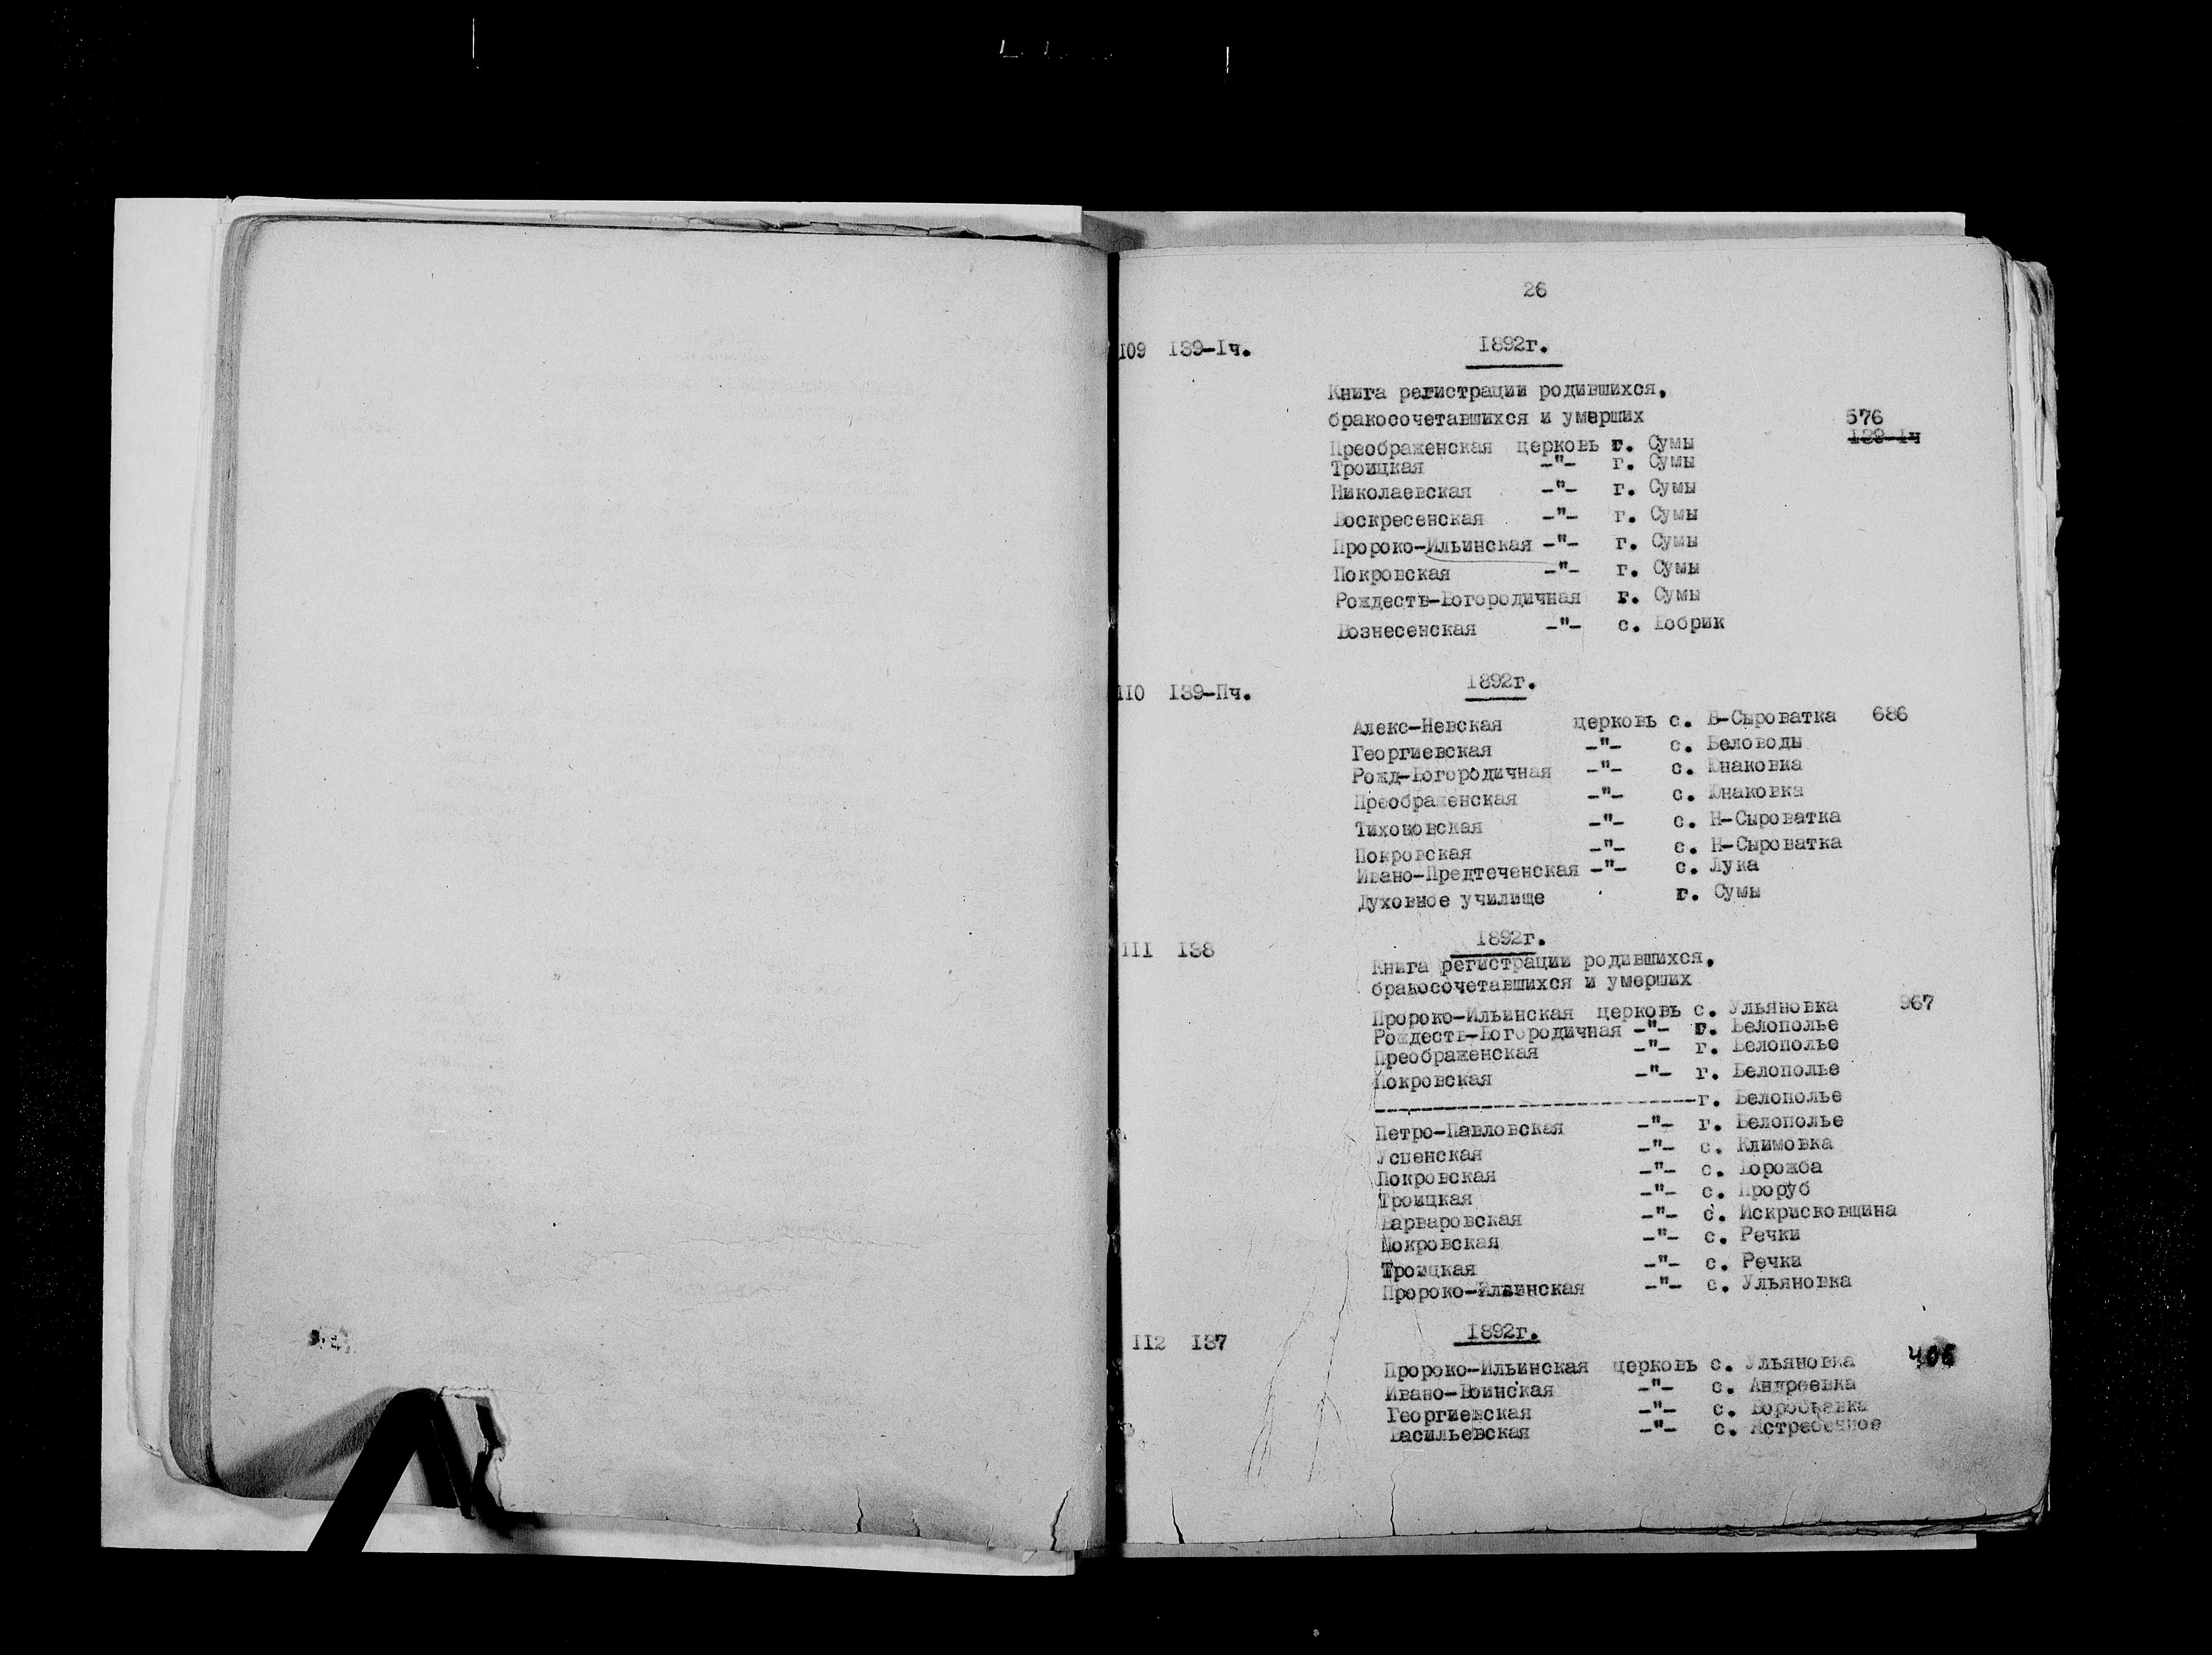 26
109 139-Iч. 1892г.
Книга регистрации родившихся,
бракосочетавшихся и умерших 576
Преображенская церковь г. Сумы 139-Iч
Троицкая -"- г. Сумы
Николаевская -"- г. Сумы
Воскресенская -"- г. Сумы
Пророко-Ильинская -"- г. Сумы
Покровская -"- г. Сумы
Рождеств-Богородичная г. Сумы
Вознесенская -"- с. Бобрик
110 139-Пч. 1892г.
Алекс-Невская церковь с. В-Сыроватка 686
Георгиевская -"- с. Беловоды
Рожд-Богородичная -"- с. Юнаковка
Преображенская -"- с. Юнаковка
Тихоновская -"- с. Н-Сыроватка
Покровская -"- с. Н-Сыроватка
Ивано-Предтеченская -"- с. Лука
Духовное училище г. Сумы
111 138 1892г.
Книга регистрации родившихся,
бракосочетавшихся и умерших
Пророко-Ильинская церковь с. Ульяновка 967
Рождеств-Богородичная -"- г. Белополье
Преображенская -"- г. Белополье
Покровская -"- г. Белополье
----------------------------г. Белополье
Петро-Павловская -"- г. Белополье
Успенская -"- с. Климовка
Покровская -"- с. Ворожба
Троицкая -"- с. Проруб
Варваровская -"- с. Искрисковщина
Покровская -"- с. Речки
Троицкая -"- с. Речки
Пророко-Ильинская -"- с. Ульяновка
112 137 1892г.
Пророко-Ильинская церковь с. Ульяновка
Ивано-Воинская -"- с. Андреевка
Георгиевская -"- с.
Васильевская -"- с. Ястребенное